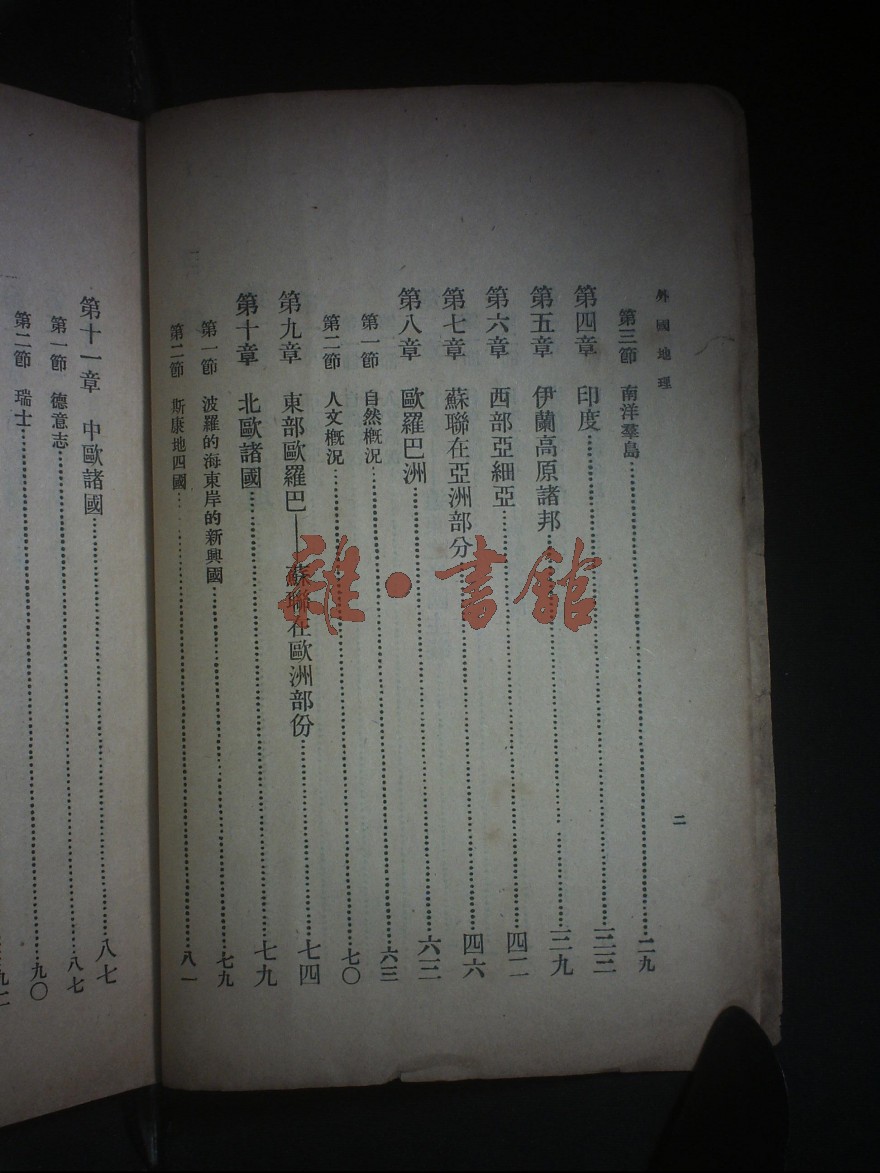 外國地理
二
第三節 南洋羣島……二九
第四章 印度……三三
第五章 伊蘭高原諸邦……三九
第六章 西部亞細亞……四二
第七章 蘇聯在亞洲部分……四六
第八章 歐羅巴洲……六三
第一節 自然概況……六三
第二節 人文概況……七〇
第九章 東部歐羅巴——蘇聯在歐洲部份……七四
第十章 北歐諸國……七九
第一節 波羅的海東岸的新興國……七九
第二節 斯康地四國……八一
第十一章 中歐諸國……八七
第一節 德意志……八七
第二節 瑞士……九〇
雜·書館